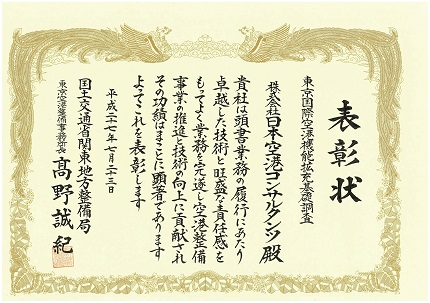 表彰状
東京国際空港機能拡充基礎調査
株式会社日本空港コンサルタンツ殿
貴社は頭書業務の履行にあたり
卓越した技術と旺盛な責任感を
もってよく業務を完遂し空港整備
事業の推進と技術の向上に貢献され
その功績はまことに顕著であります
よってこれを表彰します
平成二十七年七月二十三日
国土交通省関東地方整備局
東京空港整備事務所長
髙野誠紀